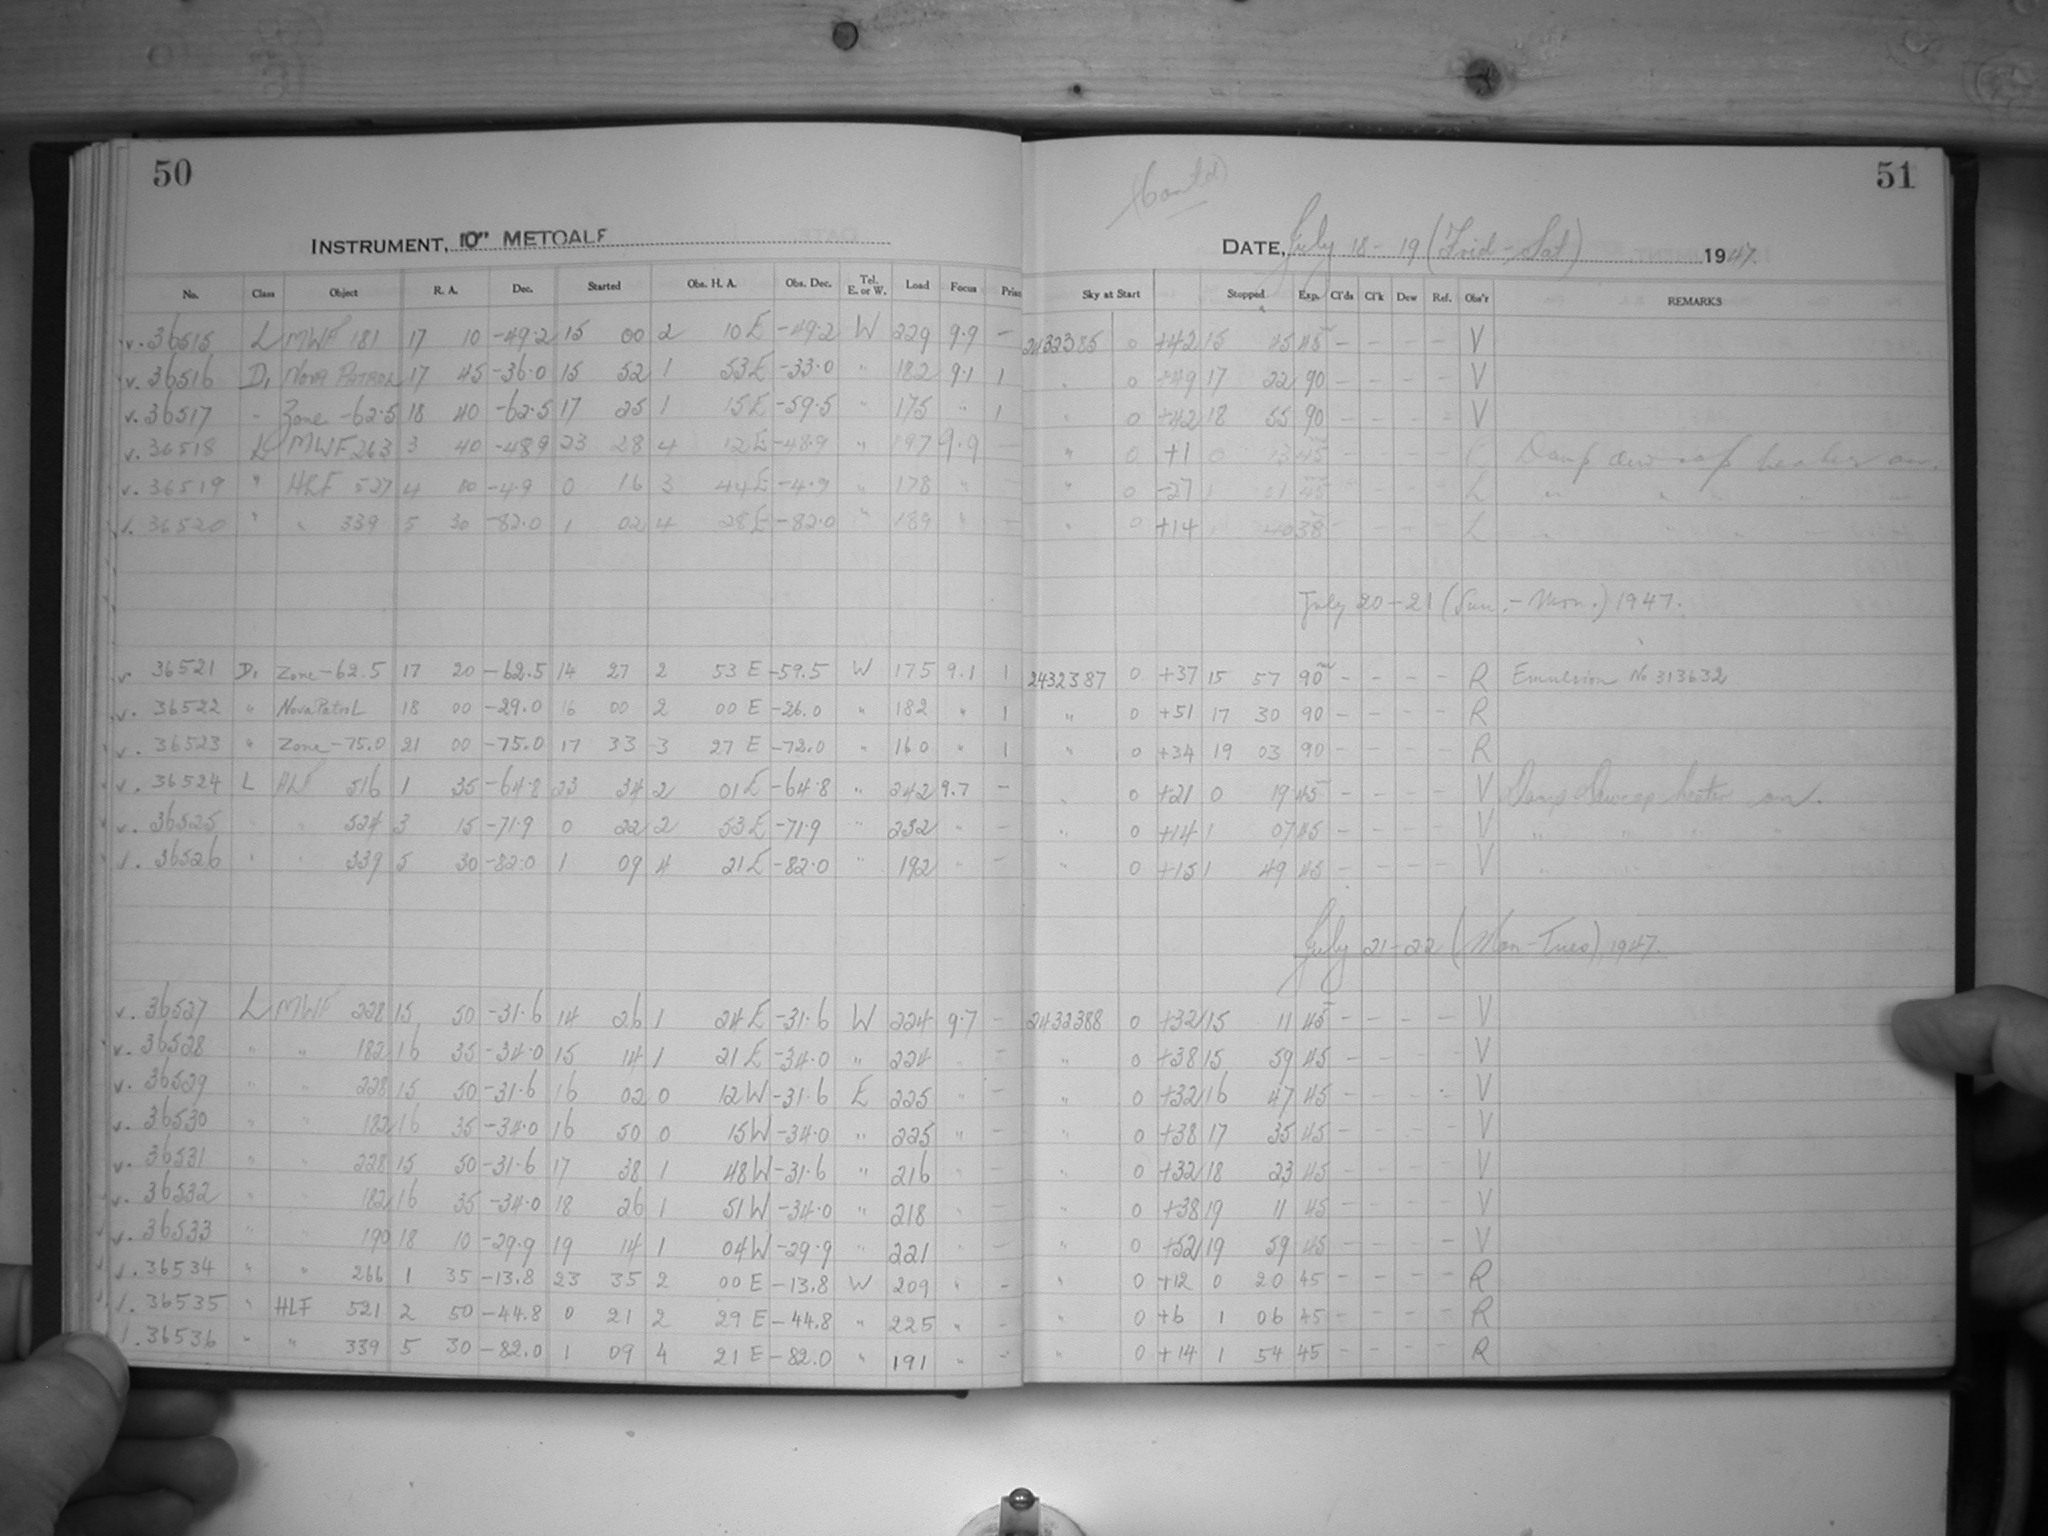 50
INSTRUMENT, 10" METCALF
No. Class Object R. A. Dec. Started Obs. H. A. Obs. Dec. Tel. E. or W. Load Focus Prism
v. 36515 L MWF 181 17 10 -49.2 15 00 2 10 E -49.2 W 229 9.9 -
v. 36516 D, NOVA PATROL 17 45 -36.0 15 52 1 53 E -33.0 " 182 9.1 1
v. 36517 " Zone -62.5 18 40 -62.5 17 25 1 15 E -59.5 " 175 " 1
v. 36518 L MWF 263 3 40 -48.9 23 28 4 12 E -48.9 " 197 9.9
v. 36519 " HLF 527 4 00 -4.9 0 16 3 44 E -4.9 " 178 "
v. 36520 " " 339 5 30 -82.0 1 02 4 28 E -82.0 " 189 "
v. 36521 D, Zone -62.5 17 20 -62.5 14 27 2 53 E -59.5 W 175 9.1 1
v. 36522 " Nova Patrol 18 00 -29.0 16 00 2 00 E -26.0 " 182 " 1
v. 36523 " Zone -75.0 21 00 -75.0 17 33 3 27 E -72.0 " 160 " 1
v. 36524 L HLF 516 1 35 -64.8 23 34 2 01 E -64.8 " 242 9.7 -
v. 36525 " " 524 3 15 -71.9 0 22 2 53 E -71.9 " 232 " -
v. 36526 " " 339 5 30 -82.0 1 09 4 21 E -82.0 " 192 " -
v. 36527 L MWF 228 15 50 -31.6 14 26 1 24 E -31.6 W 224 9.7 -
v. 36528 " " 182 16 35 -34.0 15 14 1 21 E -34.0 " 224 -
v. 36529 " " 228 15 50 -31.6 16 02 0 12 W -31.6 E 225 " -
v. 36530 " " 182 16 35 -34.0 16 50 0 15 W -34.0 " 225 " -
v. 36531 " " 228 15 50 -31.6 17 38 1 48 W -31.6 " 216 " -
v. 36532 " " 182 16 35 -34.0 18 26 1 51 W -34.0 " 218 " -
v. 36533 " " 190 18 10 -29.9 19 14 1 04 W -29.9 " 221 " -
v. 36534 " " 266 1 35 -13.8 23 35 2 00 E -13.8 W 209 " -
v. 36535 " HLF 521 2 50 -44.8 0 21 2 29 E -44.8 " 225 " -
v. 36536 " " 339 5 30 -82.0 1 09 4 21 E -82.0 " 191 " -
51
(Contd)
DATE, July 18-19 (Frid-Sat) 1947.
Sky at Start Stopped Exp. Cl'ds Cl'k Dew Ref. Obs'r REMARKS
2432385 0 +42 15 45 45 - - - - V
" 0 +49 17 22 90 - - - - V
" 0 +42 18 55 90 - - - - V
" 0 +1 0 13 45 - - - - Damp dew cap heater on.
" 0 -27 1 01 45 - - - - L " " " "
" 0 +14 40 38 - - - - L " " " "
July 20-21 (Sun.-Mon.) 1947.
2432387 0 +37 15 57 90 - - - - R Emulsion No 313632
" 0 +51 17 30 90 - - - - R
" 0 +34 19 03 90 - - - - R
" 0 +21 0 19 45 - - - - V Damp Dewcap heater on.
" 0 +14 1 07 45 - - - - V " " " "
" 0 +15 1 49 45 - - - - V " "
July 21-22 (Mon-Tues), 1947.
2432388 0 +32 15 11 45 - - - - V
" 0 +38 15 59 45 - - - - V
" 0 +32 16 47 45 - - - - V
" 0 +38 17 35 45 - - - - V
" 0 +32 18 23 45 - - - - V
" 0 +38 19 11 45 - - - - V
" 0 +52 19 59 45 - - - - V
" 0 +12 0 20 45 - - - - R
" 0 +6 1 06 45 - - - - R
" 0 +14 1 54 45 - - - - R